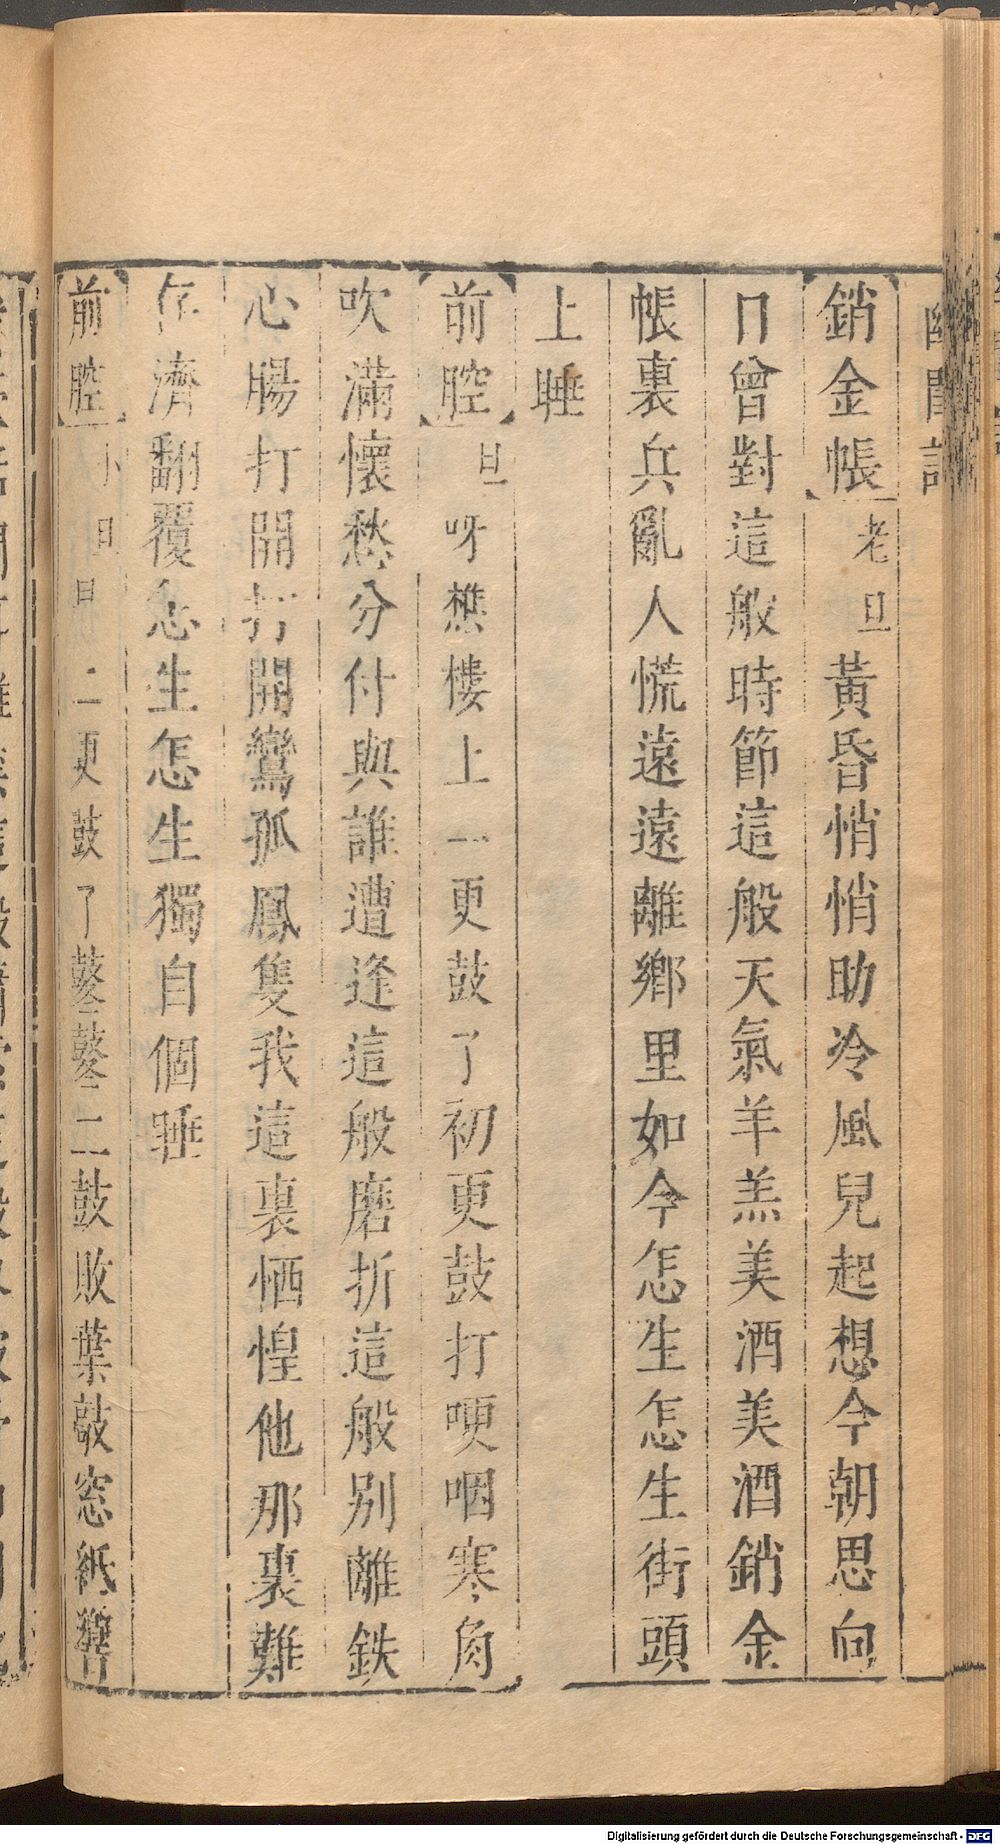 幽閨記
銷金帳 老旦 黃昏悄悄助冷風兒起想今朝思向
日曾對這般時節這般天氣羊羔美酒美酒銷金
帳裏兵亂人慌遠遠離鄉里如今怎生怎生街頭
上睡
前腔 旦 呀樵樓上一更鼓了初更鼓打哽咽寒角
吹滿懷愁分付與誰遭逢這般磨折這般別離鉄
心腸打開打開鸞孤鳳隻我這裏恓惶他那裏難
存濟翻覆怎生怎生獨自個睡
前腔 小旦 旦 二更鼓了鼕鼕二鼓敗葉敲窓紙響
Digitalisierung gefördert durch die Deutsche Forschungsgemeinschaft - DFG